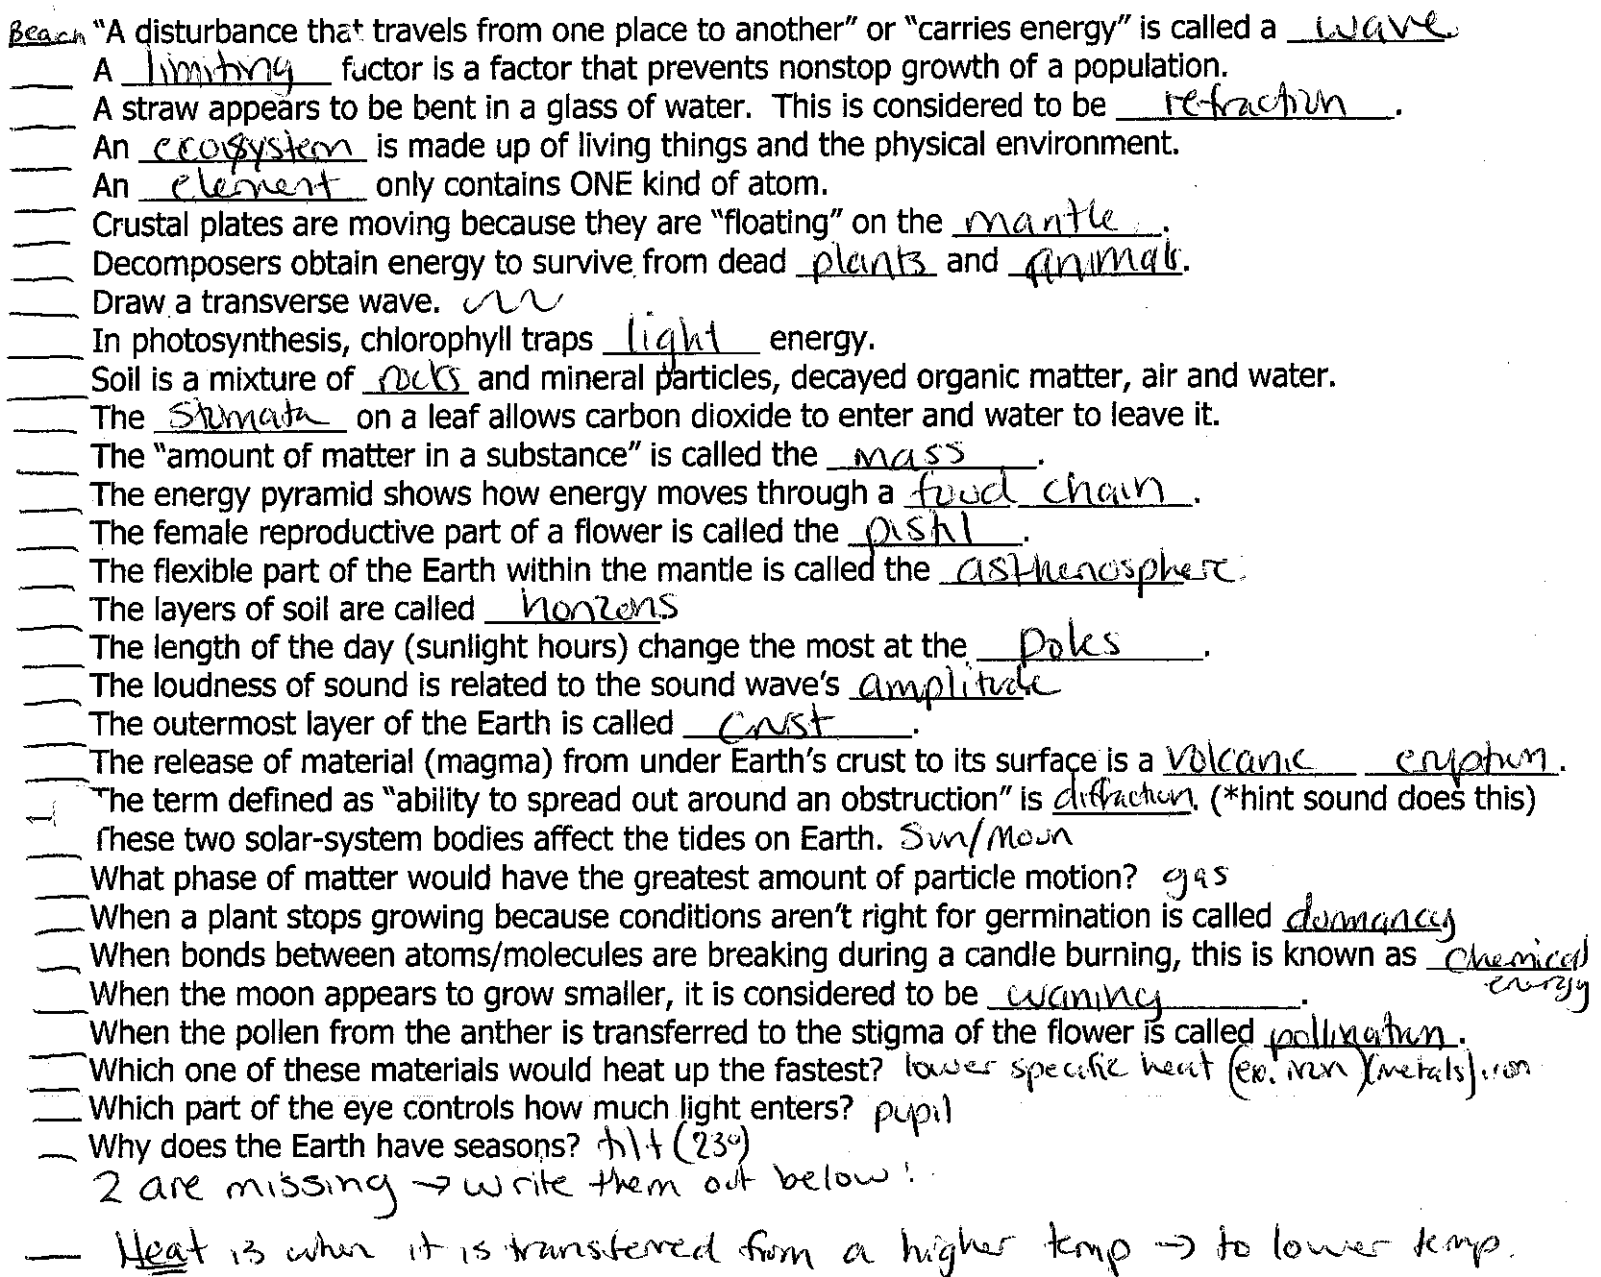 Beach "A disturbance that travels from one place to another" or "carries energy" is called a wave
A limiting fuctor is a factor that prevents nonstop growth of a population.
A straw appears to be bent in a glass of water. This is considered to be refraction.
An ecosystem is made up of living things and the physical environment.
An element only contains ONE kind of atom.
Crustal plates are moving because they are "floating" on the mantle.
Decomposers obtain energy to survive from dead plants and animals.
Draw a transverse wave.
In photosynthesis, chlorophyll traps light energy.
Soil is a mixture of rocks and mineral particles, decayed organic matter, air and water.
The stomata on a leaf allows carbon dioxide to enter and water to leave it.
The "amount of matter in a substance" is called the mass.
The energy pyramid shows how energy moves through a food chain.
The female reproductive part of a flower is called the pistil.
The flexible part of the Earth within the mantle is called the asthenosphere.
The layers of soil are called horizons
The length of the day (sunlight hours) change the most at the poles.
The loudness of sound is related to the sound wave's amplitude
The outermost layer of the Earth is called crust.
The release of material (magma) from under Earth's crust to its surface is a volcanic eruption.
The term defined as "ability to spread out around an obstruction" is diffraction. (*hint sound does this)
These two solar-system bodies affect the tides on Earth. Sun/Moon
What phase of matter would have the greatest amount of particle motion? gas
When a plant stops growing because conditions aren't right for germination is called dormancy
When bonds between atoms/molecules are breaking during a candle burning, this is known as chemical
energy
When the moon appears to grow smaller, it is considered to be waning.
When the pollen from the anther is transferred to the stigma of the flower is called pollination.
Which one of these materials would heat up the fastest? lower specific heat (ex. iron)(metals) iron
Which part of the eye controls how much light enters? pupil
Why does the Earth have seasons? tilt (23°)
2 are missing → write them out below!
Heat is when it is transferred from a higher temp → to lower temp.